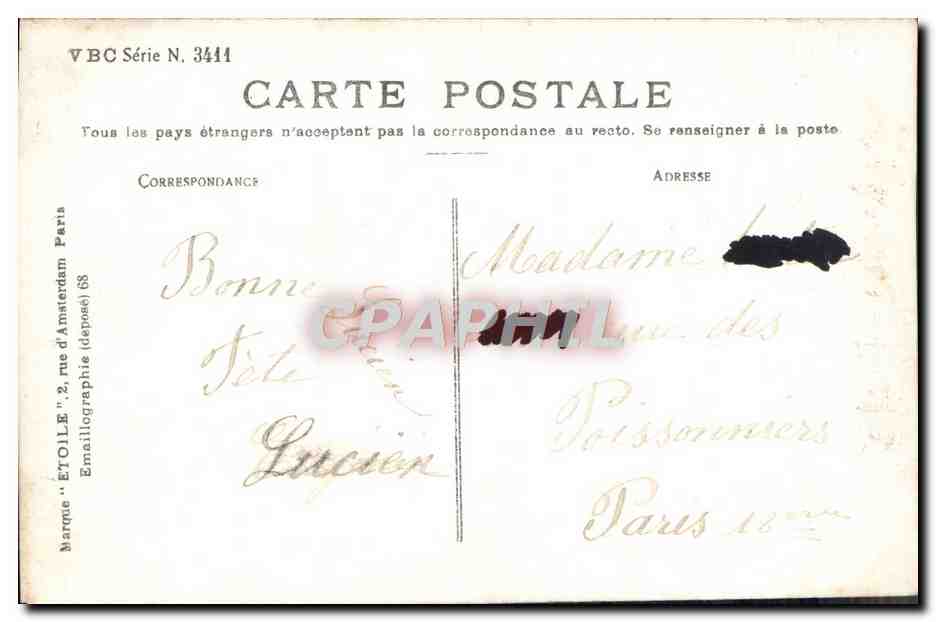 VBC Série N. 3411
CARTE POSTALE
Tous les pays étrangers n'acceptent pas la correspondance au recto. Se renseigner à la poste.
CORRESPONDANCE
ADRESSE
Marque "ETOILE", 2, rue d'Amsterdam Paris
Emaillographie (déposé) 68
Bonne
Fête
Lucien
Lucien
Madame
rue des
Poissonniers
Paris 18eme
CPAPHIL